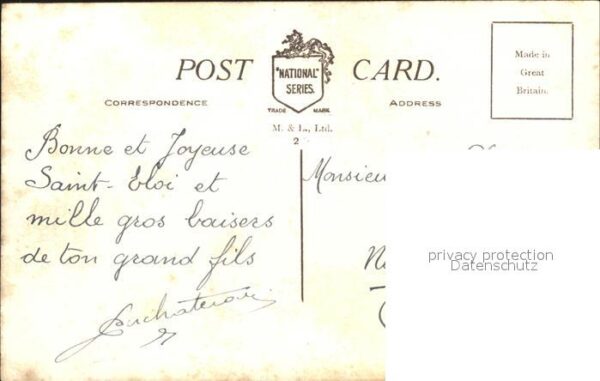 POST CARD.
"NATIONAL"
SERIES.
TRADE MARK.
M. & L., Ltd.
2
CORRESPONDENCE
ADDRESS
Made in
Great
Britain.
Bonne et Joyeuse
Saint-Eloi et
mille gros baisers
de ton grand fils
Monsieur
privacy protection
Datenschutz